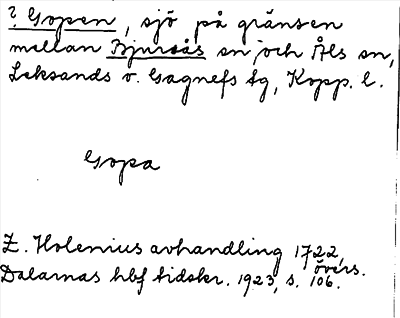 ? Gopen, sjö på gränsen
mellan Bjursås sn och Åls sn,
Leksands o. Gagnefs tg, Kopp. l.
Gopa
Z. Holenius avhandling 1722,
övers.
Dalarnas hbf tidskr. 1923, s. 106.